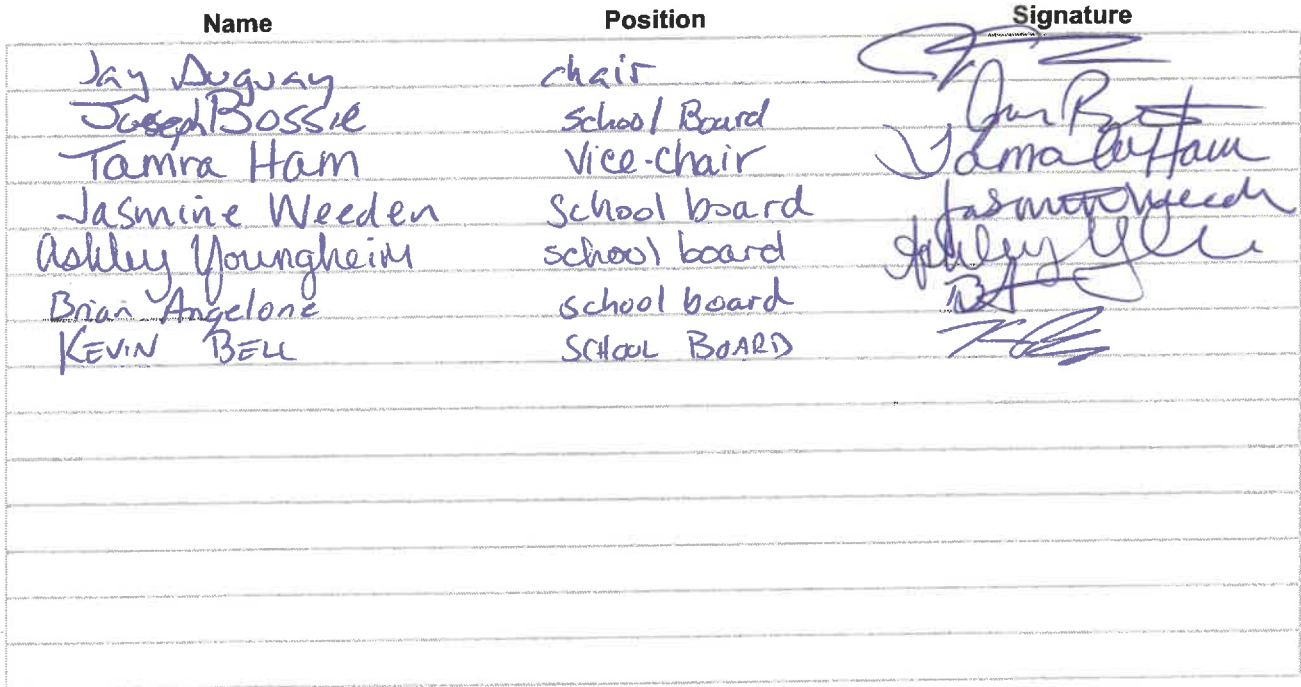 Name Position Signature
Jay Duguay chair
Joseph Bossie School Board
Tamra Ham Vice-chair
Jasmine Weeden School board
Ashley Youngheim school board
Brian Angelone school board
KEVIN BELL SCHOOL BOARD